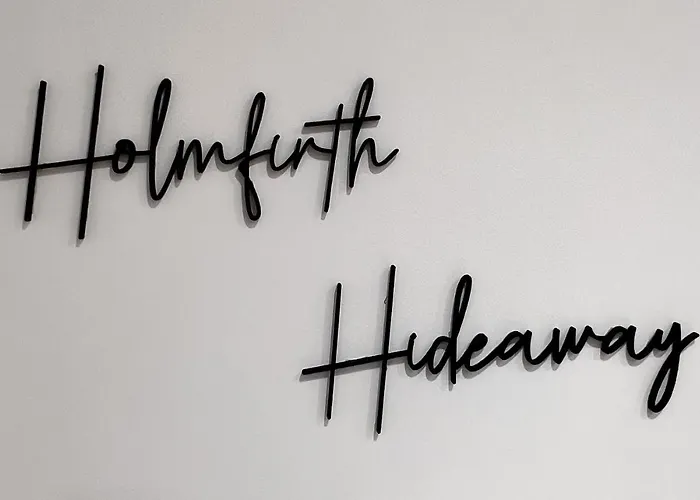 Holmfirth
Hideaway